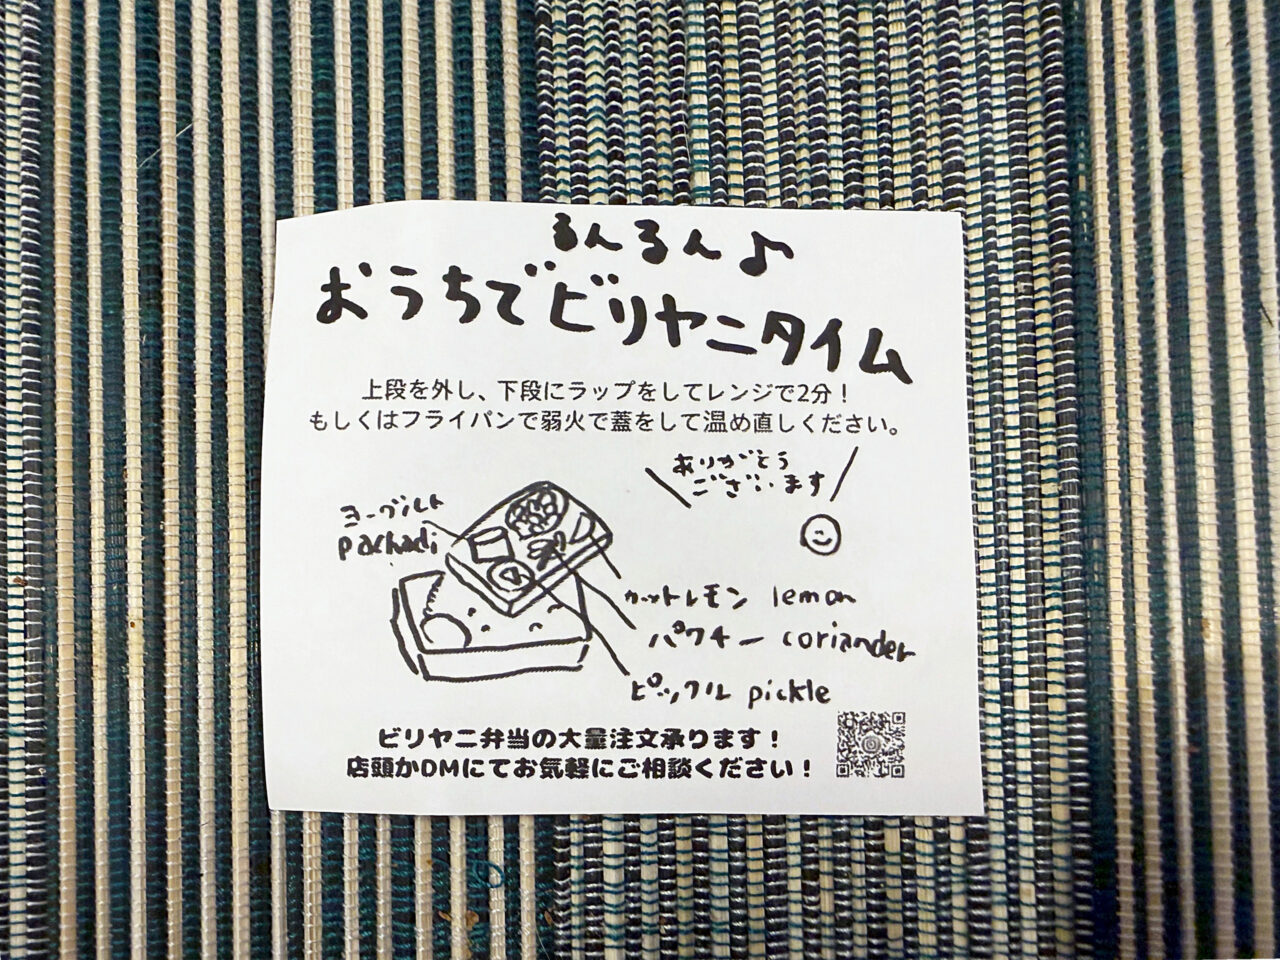 るんるん♪
おうちでビリヤニタイム
上段を外し、下段にラップをしてレンジで2分！
もしくはフライパンで弱火で蓋をして温め直しください。
ありがとう
ございます
ヨーグルト
pachadi
カットレモン lemon
パクチー coriander
ピックル pickle
ビリヤニ弁当の大量注文承ります！
店頭かDMにてお気軽にご相談ください！